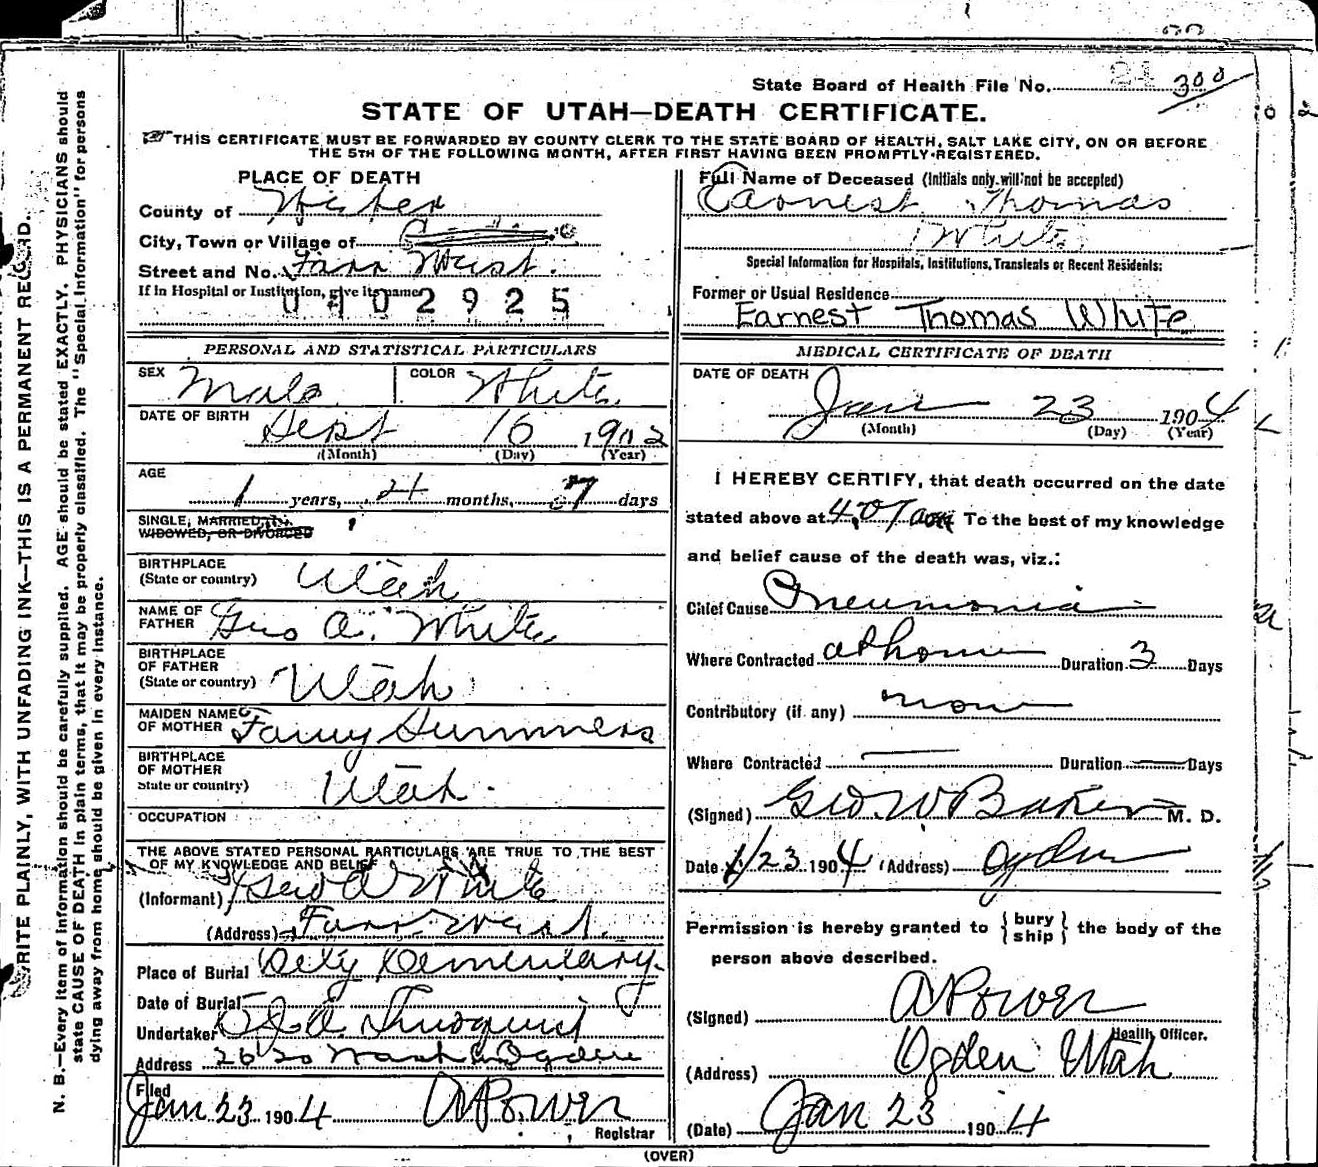 State Board of Health File No. 21 300
STATE OF UTAH—DEATH CERTIFICATE.
THIS CERTIFICATE MUST BE FORWARDED BY COUNTY CLERK TO THE STATE BOARD OF HEALTH, SALT LAKE CITY, ON OR BEFORE
THE 5TH OF THE FOLLOWING MONTH, AFTER FIRST HAVING BEEN PROMPTLY REGISTERED.
WRITE PLAINLY, WITH UNFADING INK—THIS IS A PERMANENT RECORD.
N. B.—Every item of information should be carefully supplied. AGE should be stated EXACTLY. PHYSICIANS should
state CAUSE OF DEATH in plain terms, that it may be properly classified. The "Special Information" for persons
dying away from home should be given in every instance.
PLACE OF DEATH
County of Weber
City, Town or Village of
Street and No. Farr West.
If in Hospital or Institution, give its name
0402925
PERSONAL AND STATISTICAL PARTICULARS
SEX Male COLOR White
DATE OF BIRTH Sept 16 1902
(Month) (Day) (Year)
AGE
1 years, 4 months, 7 days
SINGLE, MARRIED,
WIDOWED, OR DIVORCED
BIRTHPLACE
(State or country) Utah
NAME OF
FATHER Geo A. White
BIRTHPLACE
OF FATHER
(State or country) Utah
MAIDEN NAME
OF MOTHER Fanny Summers
BIRTHPLACE
OF MOTHER
State or country) Utah.
OCCUPATION
THE ABOVE STATED PERSONAL PARTICULARS ARE TRUE TO THE BEST
OF MY KNOWLEDGE AND BELIEF
(Informant) Geo A White
(Address) Farr West.
Place of Burial City Cementary.
Date of Burial
Undertaker
Address Wash Ogden
Filed
Jan 23 1904 A Power
Registrar
Full Name of Deceased (Initials only will not be accepted)
Earnest Thomas
White
Special Information for Hospitals, Institutions, Transients or Recent Residents:
Former or Usual Residence
Earnest Thomas White
MEDICAL CERTIFICATE OF DEATH
DATE OF DEATH
Jan 23 1904
(Month) (Day) (Year)
I HEREBY CERTIFY, that death occurred on the date
stated above at 4.07 am To the best of my knowledge
and belief cause of the death was, viz.:
Chief Cause Pneumonia
Where Contracted at home Duration 3 Days
Contributory (if any) none
Where Contracted — Duration — Days
(Signed) Geo W Baker M. D.
Date 1/23 1904 (Address) Ogden
Permission is hereby granted to { bury
ship } the body of the
person above described.
(Signed) A Power
Health Officer.
(Address) Ogden Utah
(Date) Jan 23 1904
(OVER)